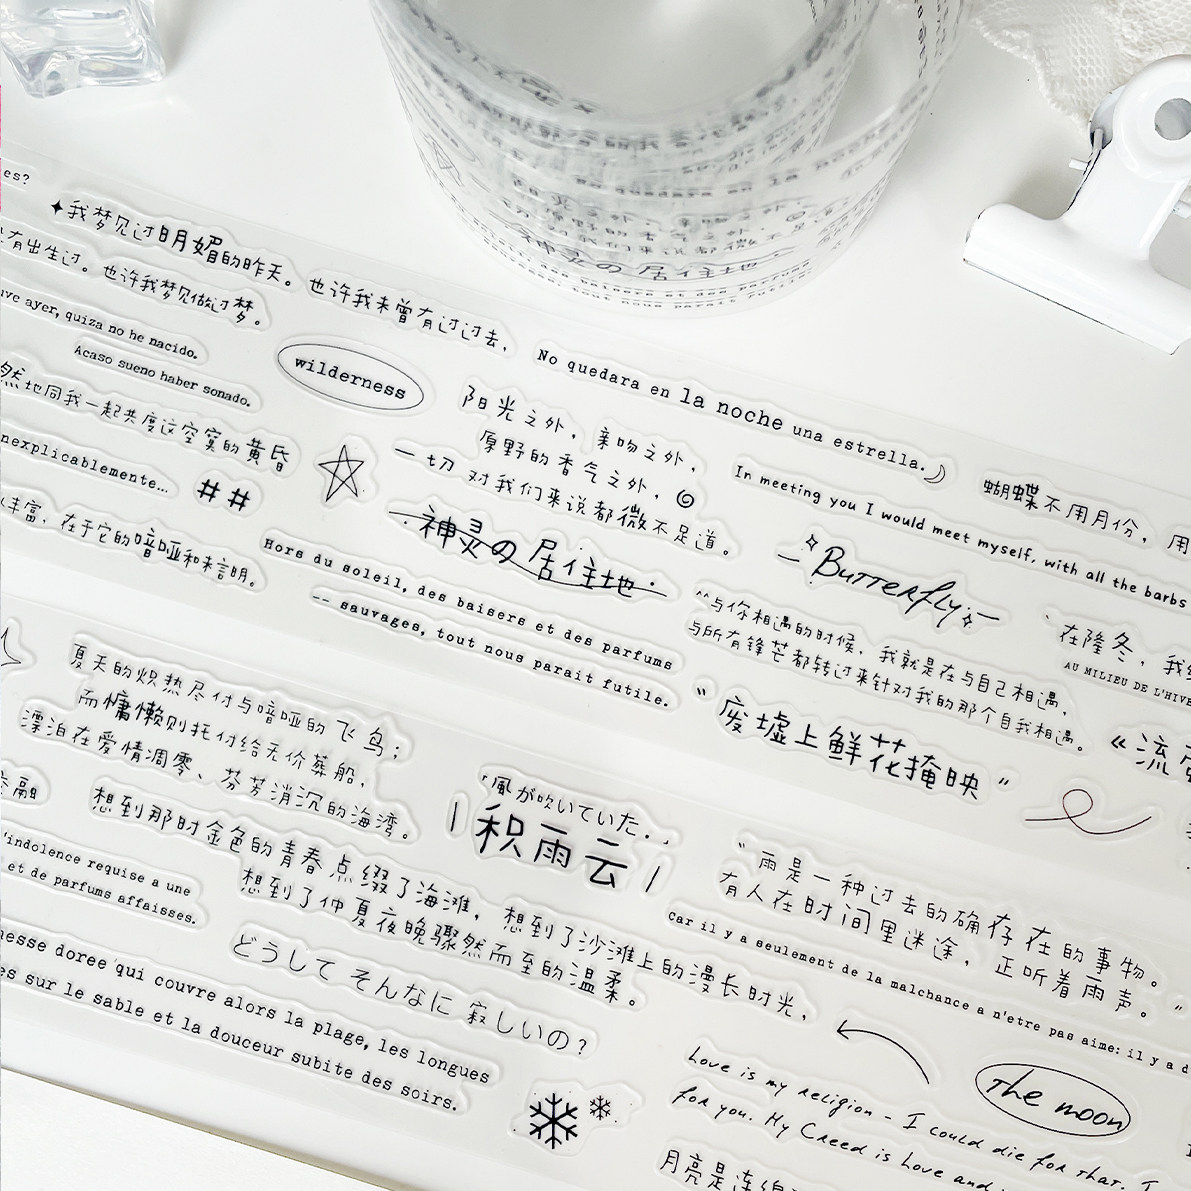 es?
✦我梦见过明媚的昨天。也许我未曾有过过去,
有出生过。也许我梦见做过梦。
ve ayer, quiza no he nacido.
Acaso sueno haber sonado.
wilderness
然地同我一起共度这空寞的黄昏
nexplicablemente...
##
丰富,在于它的喑哑和未言明。
No quedara en la noche una estrella.
阳光之外,亲吻之外,
原野的香气之外,
一切对我们来说都微不足道。
神灵の居住地
Hors du soleil, des baisers et des parfums
-- sauvages, tout nous parait futile.
In meeting you I would meet myself, with all the barbs
Butterfly
蝴蝶不用月份,用
“与你相遇的时候,我就是在与自己相遇,
与所有锋芒都转过来针对我的那个自我相遇。
在隆冬,我
AU MILIEU DE L'HIVE
“废墟上鲜花掩映”
《流
夏天的炽热尽付与喑哑的飞鸟;
而慵懒则托付给无价葬船,
漂泊在爱情凋零、芬芳消沉的海湾。
融
'indolence requise a une
et de parfums affaisses.
「風が吹いていた.
积雨云
想到那时金色的青春点缀了海滩,想到了沙滩上的漫长时光,
想到了仲夏夜晚骤然而至的温柔。
“雨是一种过去的确存在的事物。
有人在时间里迷途,正听着雨声。”
Car il y a seulement de la malchance a n'etre pas aime: il y a d
どうして そんなに 寂しいの?
nesse doree qui couvre alors la plage, les longues
es sur le sable et la douceur subite des soirs.
The moon
Love is my religion - I could die for that. I
for you. My Creed is Love and
月亮是连绵